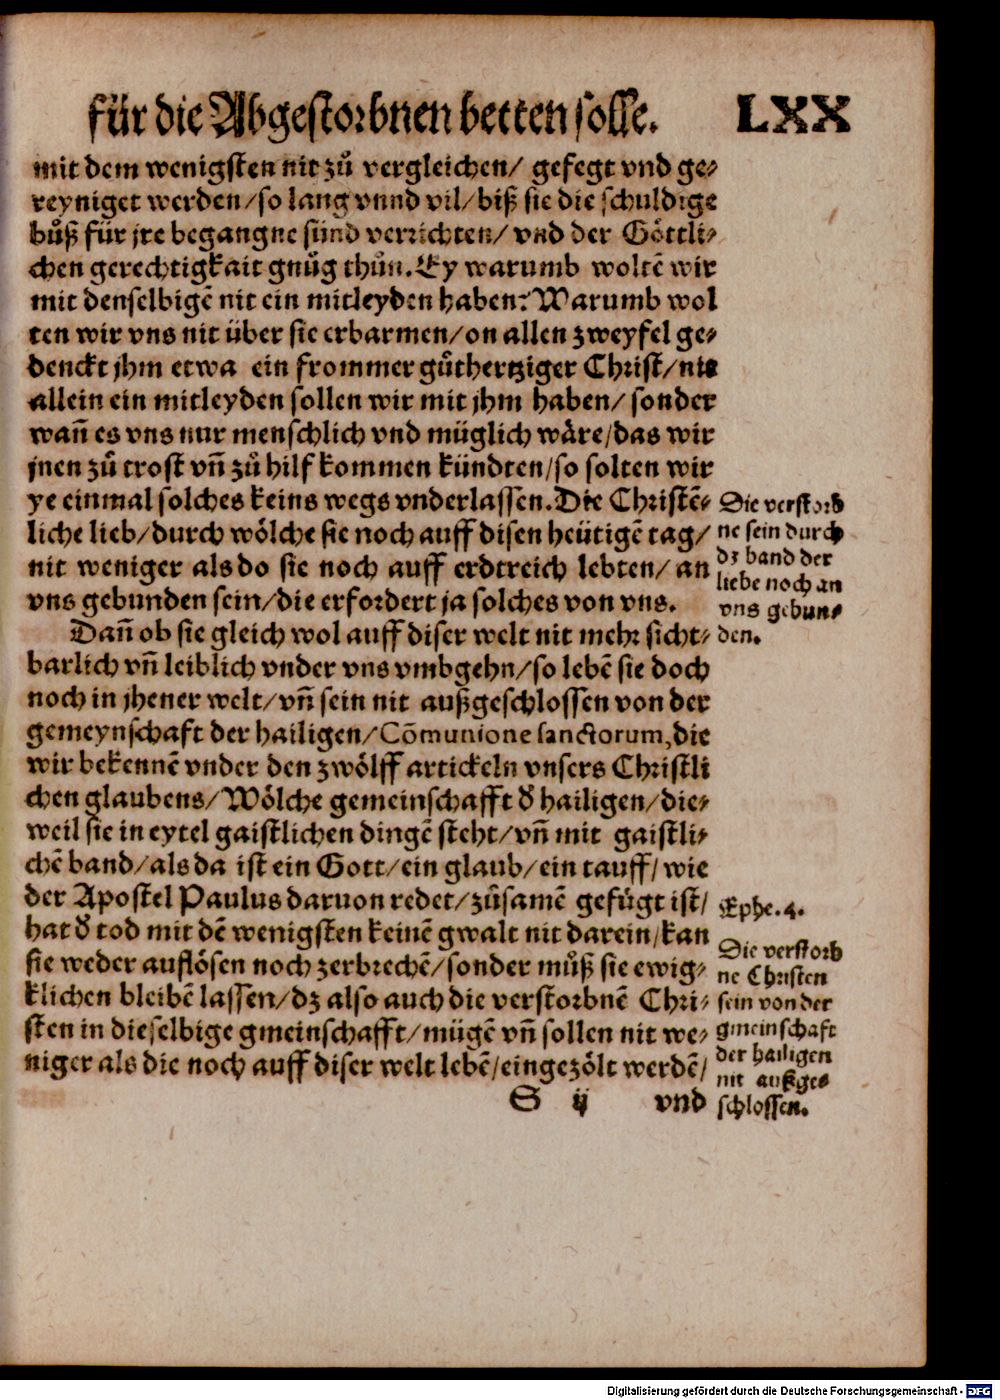 für die Abgestorbnen betten solle. LXX
mit dem wenigsten nit zů vergleichen/ gefegt vnd ge⸗
reyniget werden/so lang vnnd vil/biß sie die schuldige
bůß für jre begangne sünd verrichten/ vnd der Göttli⸗
chen gerechtigkait gnůg thůn. Ey warumb woltē wir
mit denselbigē nit ein mitleyden haben? Warumb wol
ten wir vns nit über sie erbarmen/on allen zweyfel ge⸗
denckt jhm etwa ein frommer gůthertziger Christ/nit
allein ein mitleyden sollen wir mit jhm haben/ sonder
wañ es vns nur menschlich vnd müglich wäre/das wir
jnen zů trost vñ zů hilf kommen kündten/so solten wir
ye einmal solches keins wegs vnderlassen. Die Christē⸗
liche lieb/durch wölche sie noch auff disen heütigē tag/
nit weniger als do sie noch auff erdtreich lebten/ an
vns gebunden sein/die erfordert ja solches von vns.
Die verstorb
ne sein durch
dz band der
liebe noch an
vns gebun⸗
den.
Dañ ob sie gleich wol auff diser welt nit mehr sicht⸗
barlich vñ leiblich vnder vns vmbgehn/so lebē sie doch
noch in jhener welt/vñ sein nit außgeschlossen von der
gemeynschaft der hailigen/Cōmunione sanctorum,die
wir bekennē vnder den zwölff artickeln vnsers Christli
chen glaubens/Wölche gemeinschafft d' hailigen/die⸗
weil sie in eytel gaistlichen dingē steht/vñ mit gaistli⸗
chē band/als da ist ein Gott/ein glaub/ein tauff/wie
der Apostel Paulus daruon redet/zůsamē gefügt ist/
hat d' tod mit dē wenigsten keinē gwalt nit darein/kan
sie weder auflösen noch zerbrechē/sonder můß sie ewig⸗
klichen bleibē lassen/dz also auch die verstorbnē Chri⸗
sten in dieselbige gmeinschafft/mügē vñ sollen nit we⸗
niger als die noch auff diser welt lebē/eingezölt werdē/
Ephe. 4.
Die verstorb
ne Christen
sein von der
gmeinschaft
der hailigen
nit außge⸗
schlossen.
S ij vnd
Digitalisierung gefördert durch die Deutsche Forschungsgemeinschaft - DFG